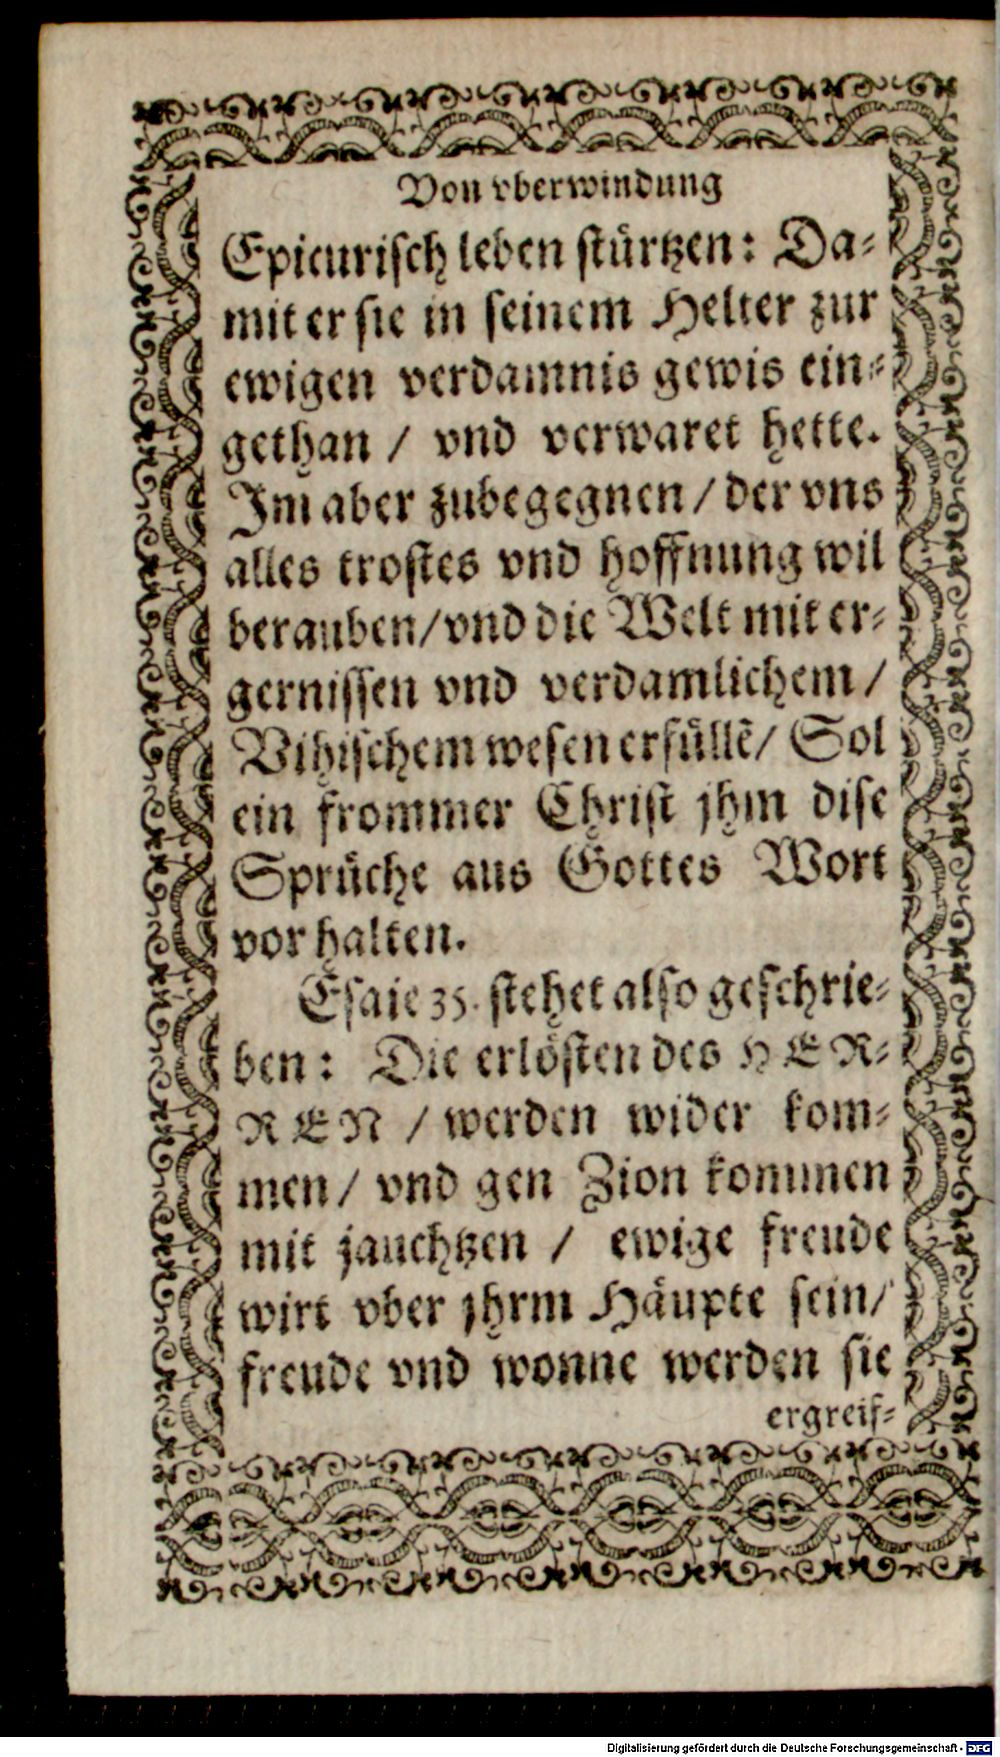 Von vberwindung
Epicurisch leben stürtzen: Da-
mit er sie in seinem Helter zur
ewigen verdamnis gewis ein-
gethan / vnd verwaret hette.
Im aber zubegegnen / der vns
alles trostes vnd hoffnung wil
berauben/vnd die Welt mit er-
gernissen vnd verdamlichem /
Vihischem wesen erfüllẽ/ Sol
ein frommer Christ jhm dise
Sprüche aus Gottes Wort
vor halten.
Esaie 35. stehet also geschrie-
ben: Die erlösten des HER-
REN / werden wider kom-
men / vnd gen Zion kommen
mit jauchtzen / ewige freude
wirt vber jhrm Häupte sein/
freude vnd wonne werden sie
ergreif-
Digitalisierung gefördert durch die Deutsche Forschungsgemeinschaft - DFG